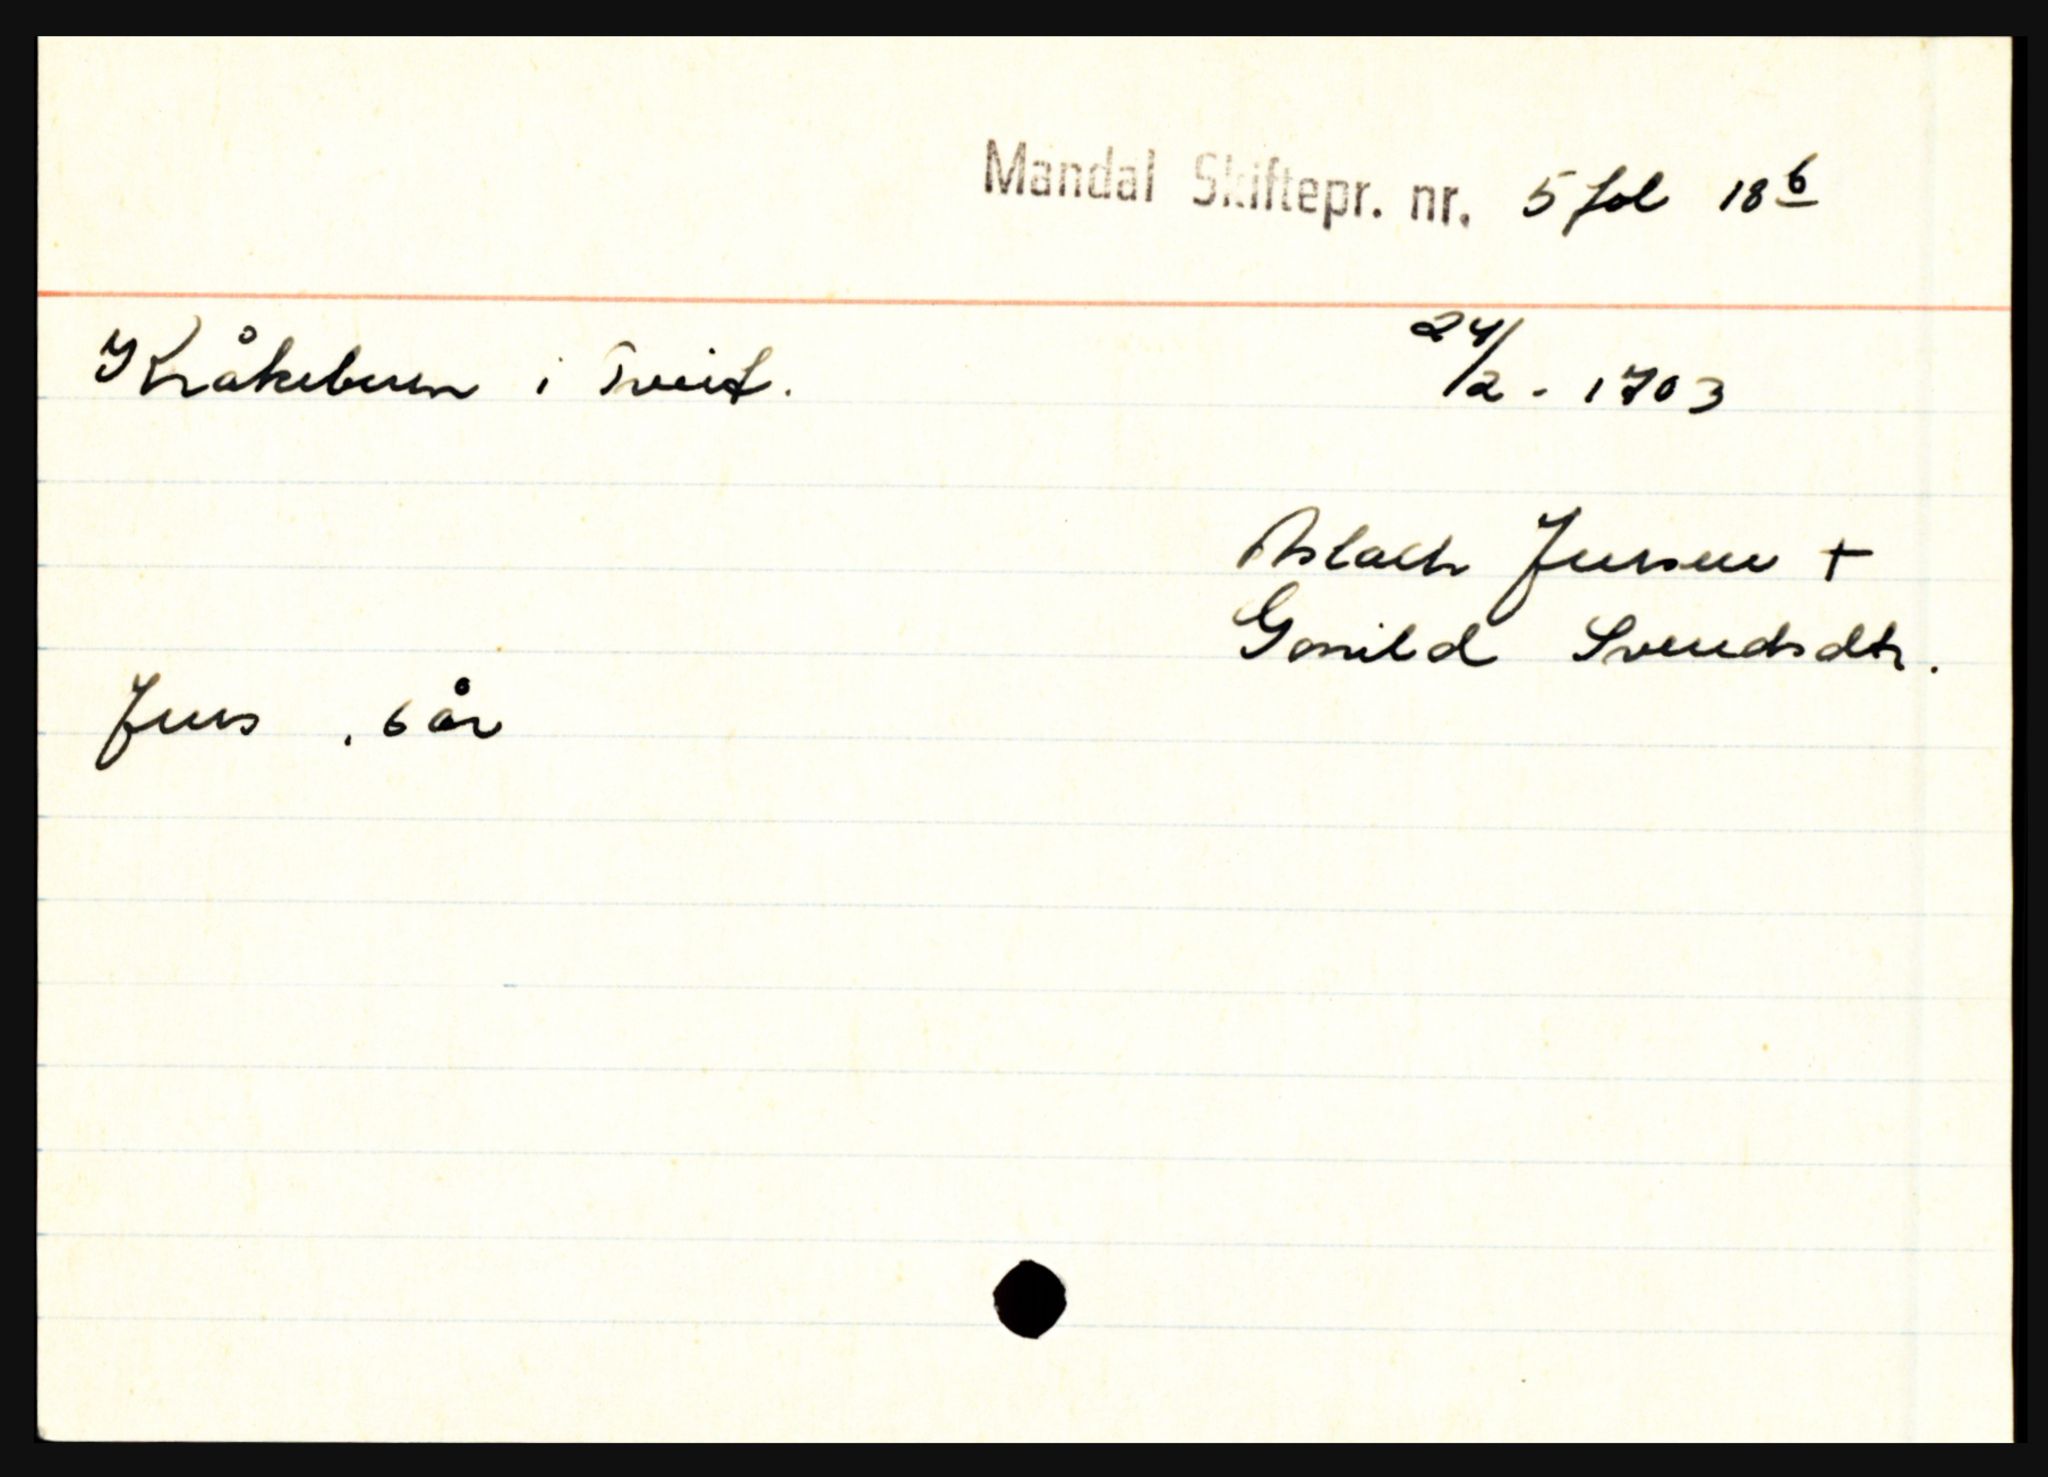 Mandal Skiftepr. nr. 5 fol 18 b
Kråkebuen i Tveit.
24/2 - 1703
Aslach Jensen +
Gonild Svendsdtr.
Jens , 6 år